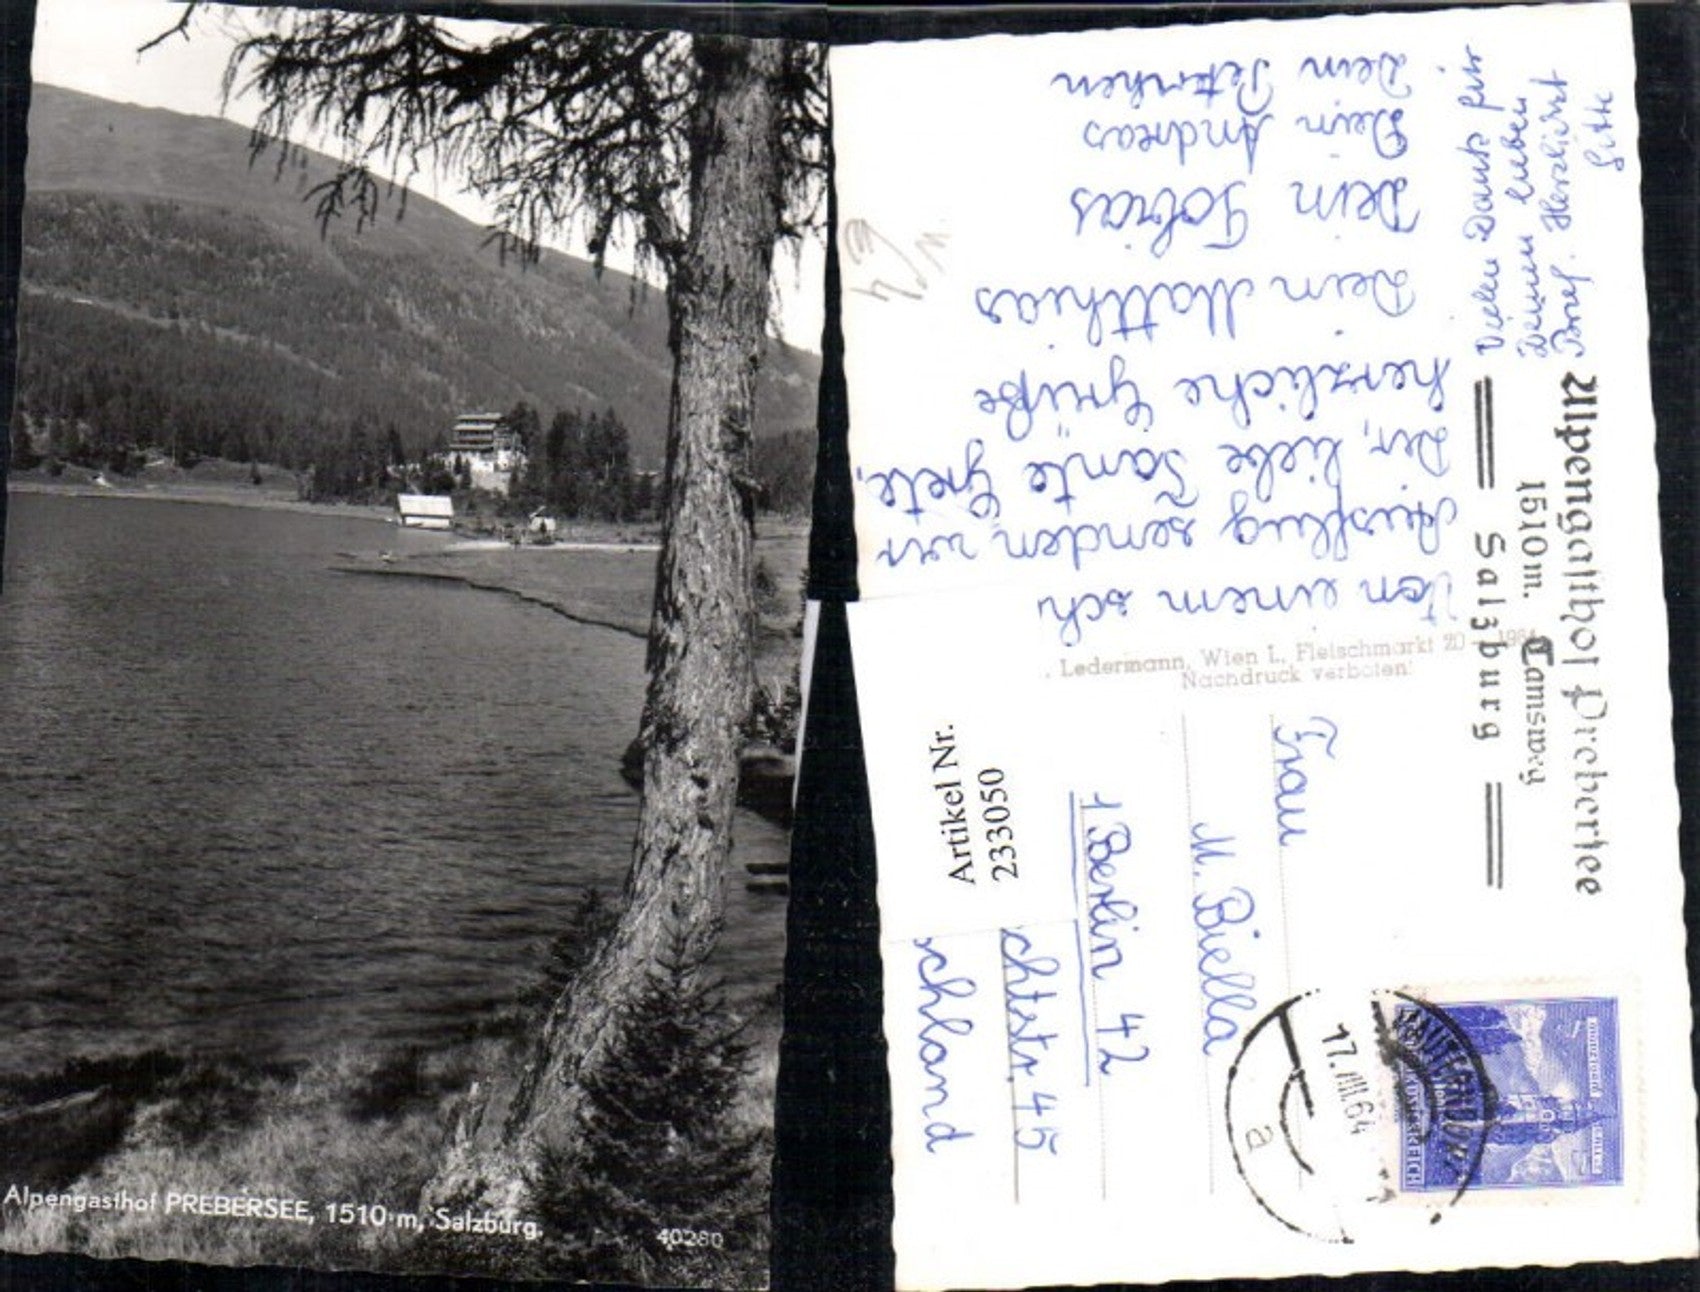 Alpengasthof PREBERSEE, 1510 m, Salzburg.
40280
Von einem sch
Ausflug senden wir
Dir, liebe Tante Grete,
herzliche Grüße
Dein Matthias
Dein Tobias
Dein Andreas
Dein Peterchen
Vielen Dank für
Deinen lieben
Brief. Herzlichst
Gitte
Alpengasthof Prebersee
1510 m. Tamsweg
Salzburg
Ledermann, Wien I., Fleischmarkt 20 1964
Nachdruck verboten!
Artikel Nr.
233050
Frau
M. Biella
1 Berlin 42
chtstr. 45
schland
17.VIII.64
MAUTERNDORF
a
REPUBLIK ÖSTERREICH